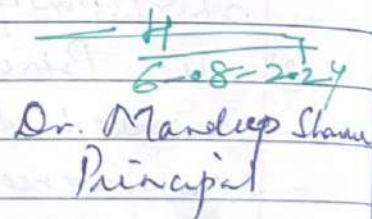 6-08-2024
Dr. Mandeep Sharma
Principal